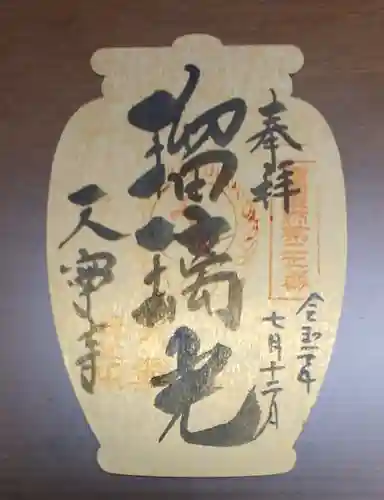 奉拝
令和二年
七月十二日
瑠璃光
天寧寺